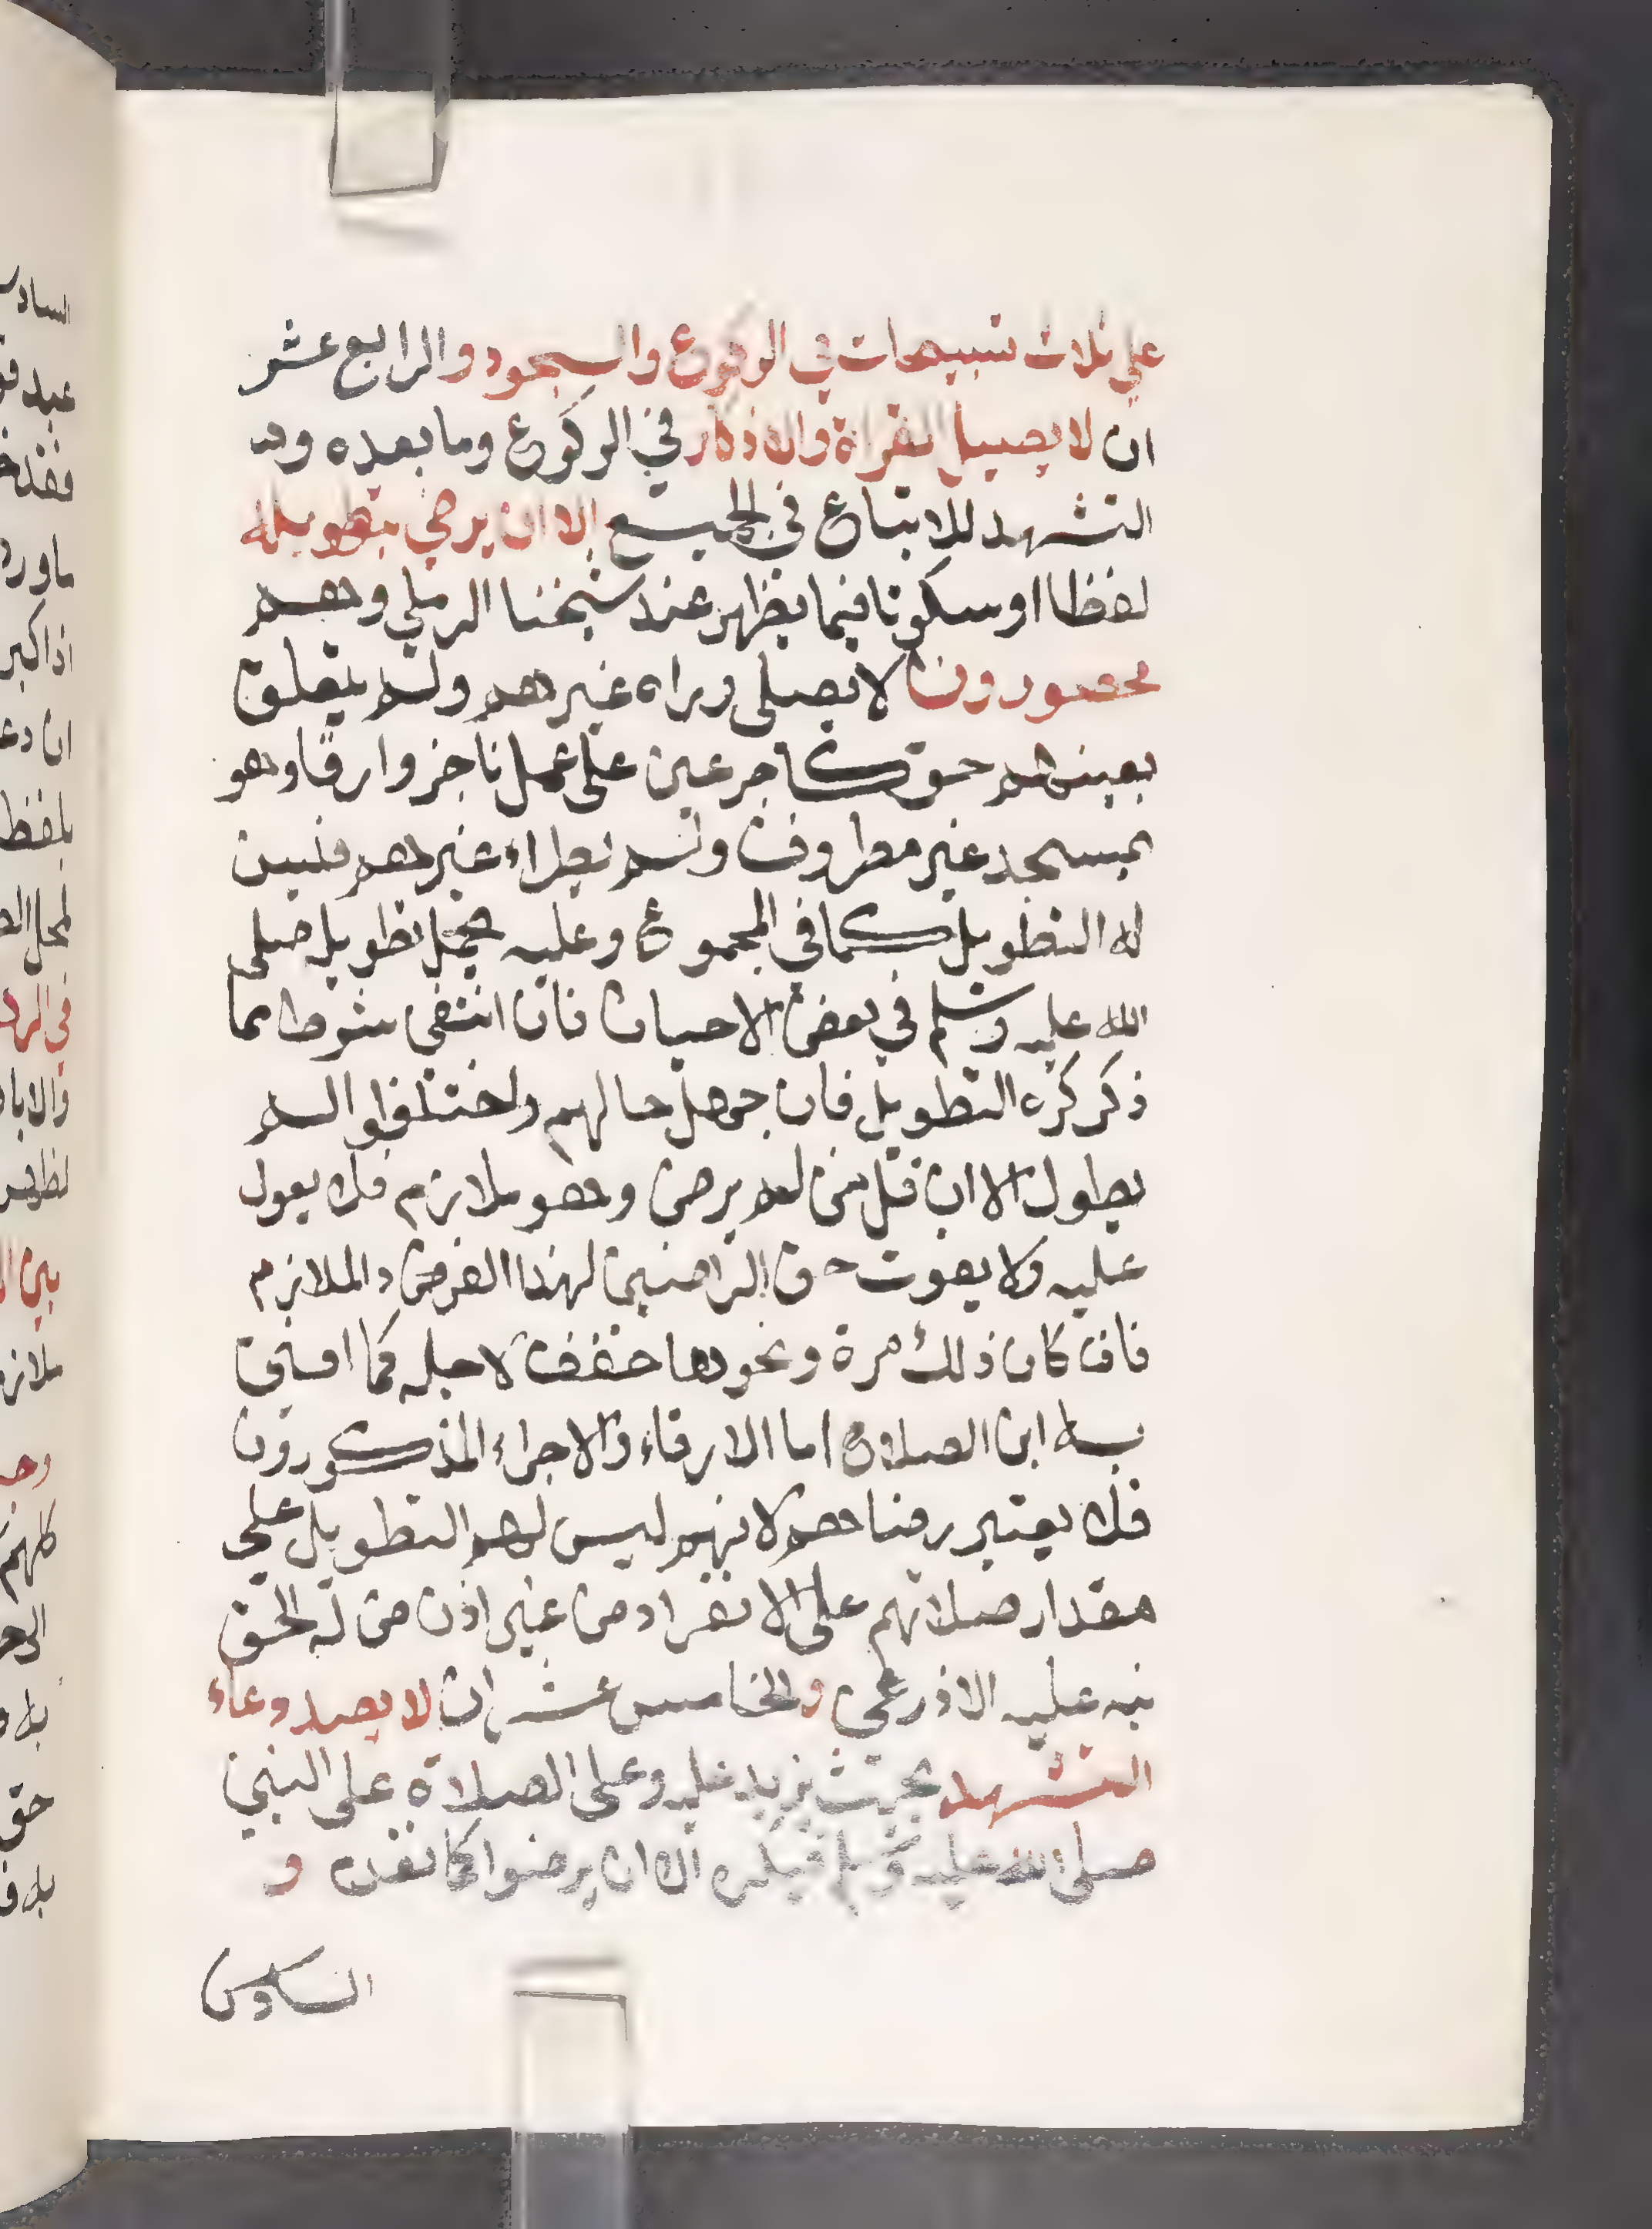 على ثلاث تسبيحات في الركوع والسجود والرابع عشر
ان لا يطيل القراة والاذكار في الركوع وما بعده و
التشهد للاتباع في الجميع الا ان يرضي بتطويله
لفظا او سكوتا فيما يظهر عند شيخنا الرملي وهم
محصورون لا يصلي وراه غيرهم ولم يتعلق
بعينهم حق كاجر عين على عمل ناجز وارقاوهو
بمسجد غير مطروق ولم يطراء غيرهم فليس
له التطويل كما في المجموع وعليه يحمل تطويل صلى
الله عليه وسلم في بعض الاحيان فان انتفى شرط مما
ذكر كره التطويل فان جهل حالهم واختلفوا لم
يطول الا ان قل من لم يرض وهو ملازم فلا يعول
عليه ولا يفوت حق الراضين لهذا الفرض الملازم
فان كان ذلك مرة ونحوها خفف لاجله كما افتى
به ابن الصلاح اما الارقاء والاجراء المذكورون
فلا يعتبر رضاهم لانهم ليس لهم التطويل على
مقدار صلاتهم على الانفراد من غير اذن من له الحق
نبه عليه الاذرعي والخامس عشر ان لا يصد دعاء
التشهد بحيث يزيد عليه وعلى الصلاة على النبي
صلى الله عليه وسلم فيكره الا ان يرضوا كما تقدم و
السادس